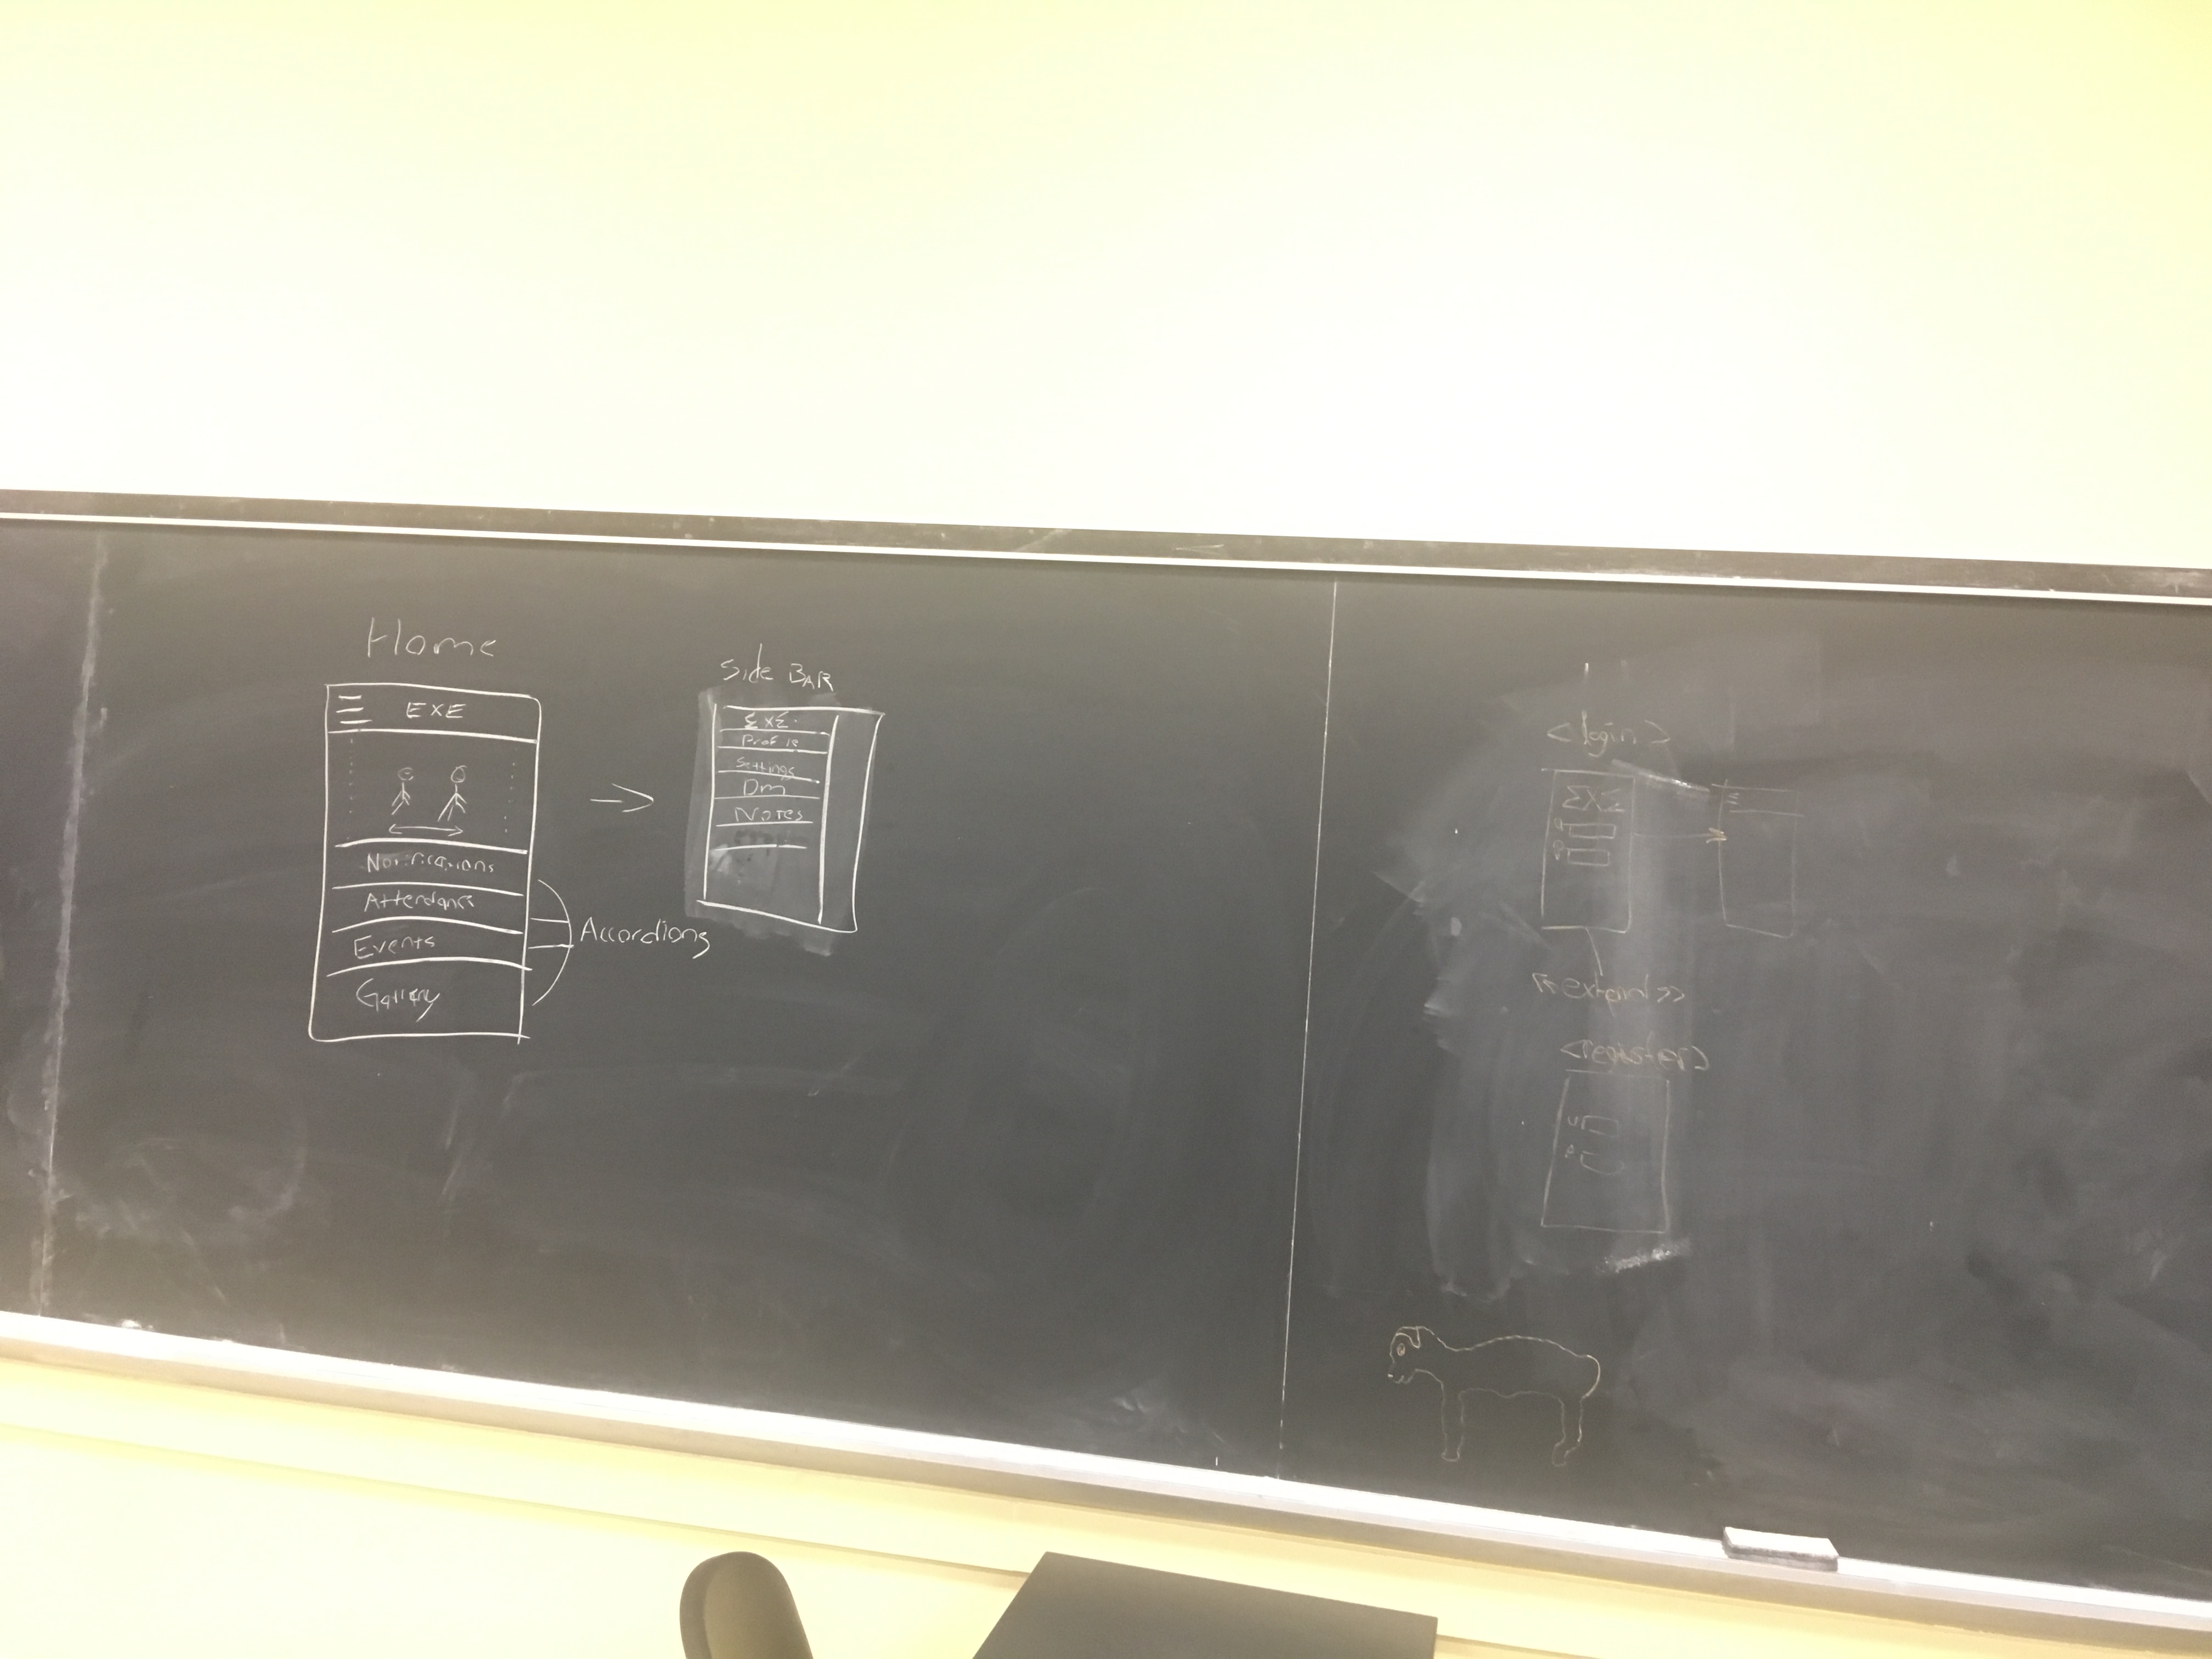 Home
EXE
Notifications
Attendance
Events
Gallery
Accordions
Side BAR
ΣXΣ
Profile
Settings
Dm
Notes
<login>
ΣXΣ
P
<<extend>>
<register>
U
P